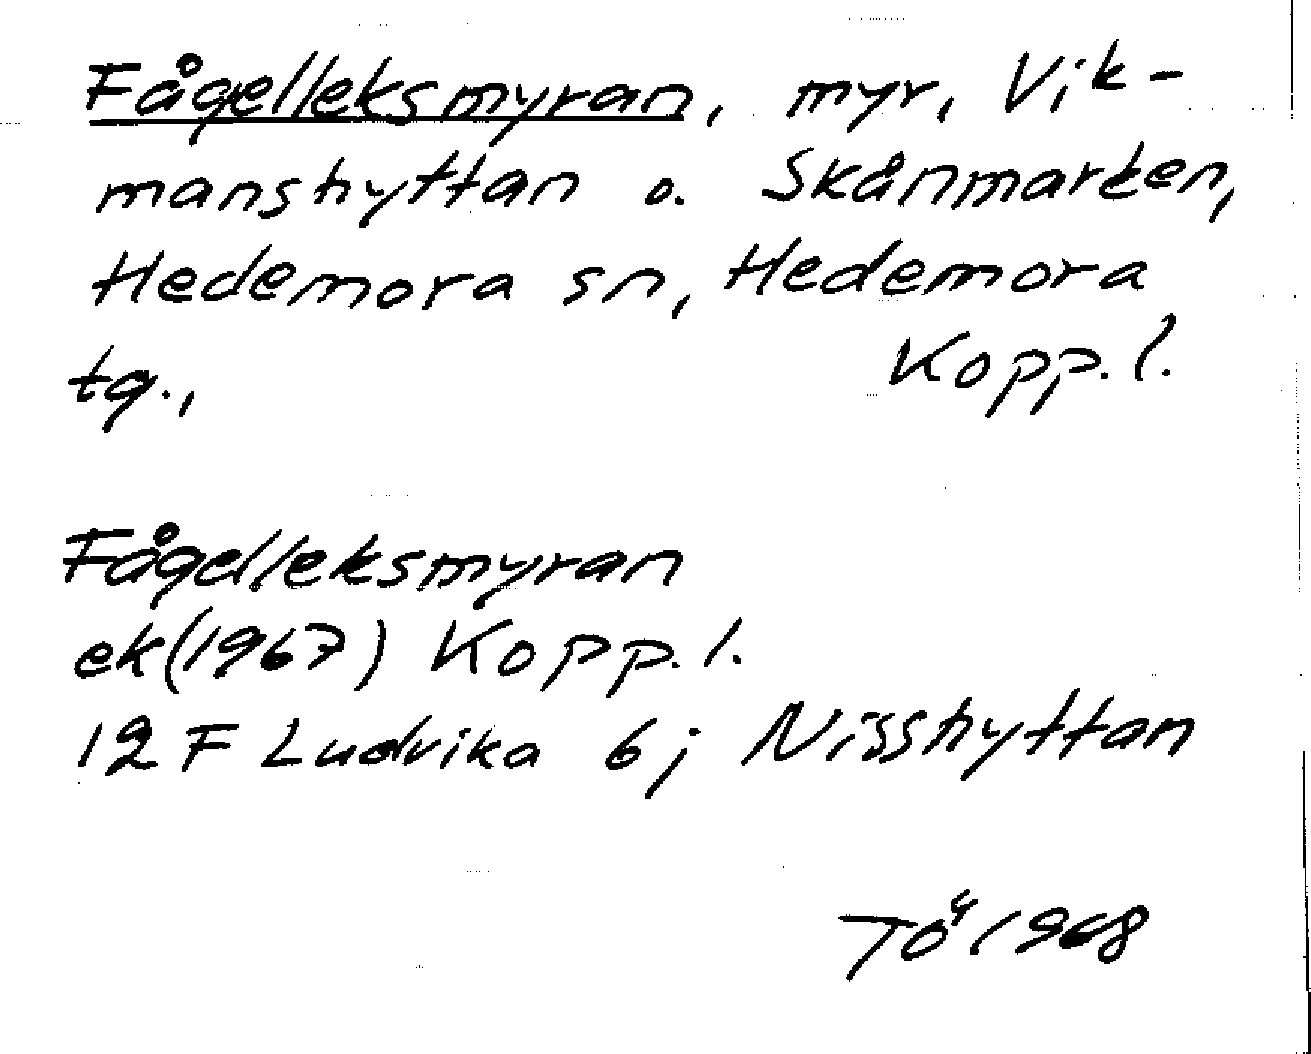 Fågelleksmyran, myr, Vik-
manshyttan o. Skånmarken,
Hedemora sn, Hedemora
tg., Kopp. l.
Fågelleksmyran
ek(1967) Kopp. l.
12 F Ludvika 6j Nisshyttan
TÖ 1968